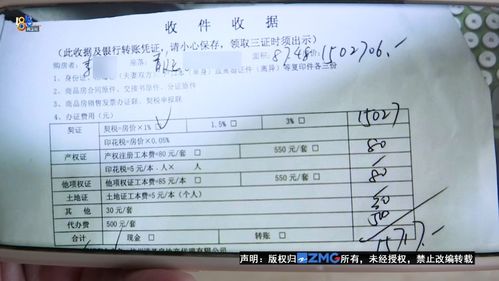 收件收据
(此收据及银行转账凭证，请小心保存，领取三证时须出示)
购房者： 座落： 面积：87.48 1502706.-
1、身份证、 (夫妻双方 等复印件各三份
2、商品房合同原件、交接书原件、分证原件
3、商品房销售发票办证联、契税申报联
4、办证费用(元)
契证 契税=房价×1% 1.5% □ 3% □ 15027
印花税=房价×0.05%
产权证 产权注册工本费=80元/套 □ 550元/套 □ 80
印花税=5元/本.人× 人
他项权证 他项权证工本费=85元/本 □ 550元/套 □ 80
土地证 土地证工本费=5元/本(个人)
其他 30元/套 30
代办费 500元/套 500
合计 现金 □ 转账 □ 15717.-
ZMG
声明：版权归ZMG所有，未经授权，禁止改编转载